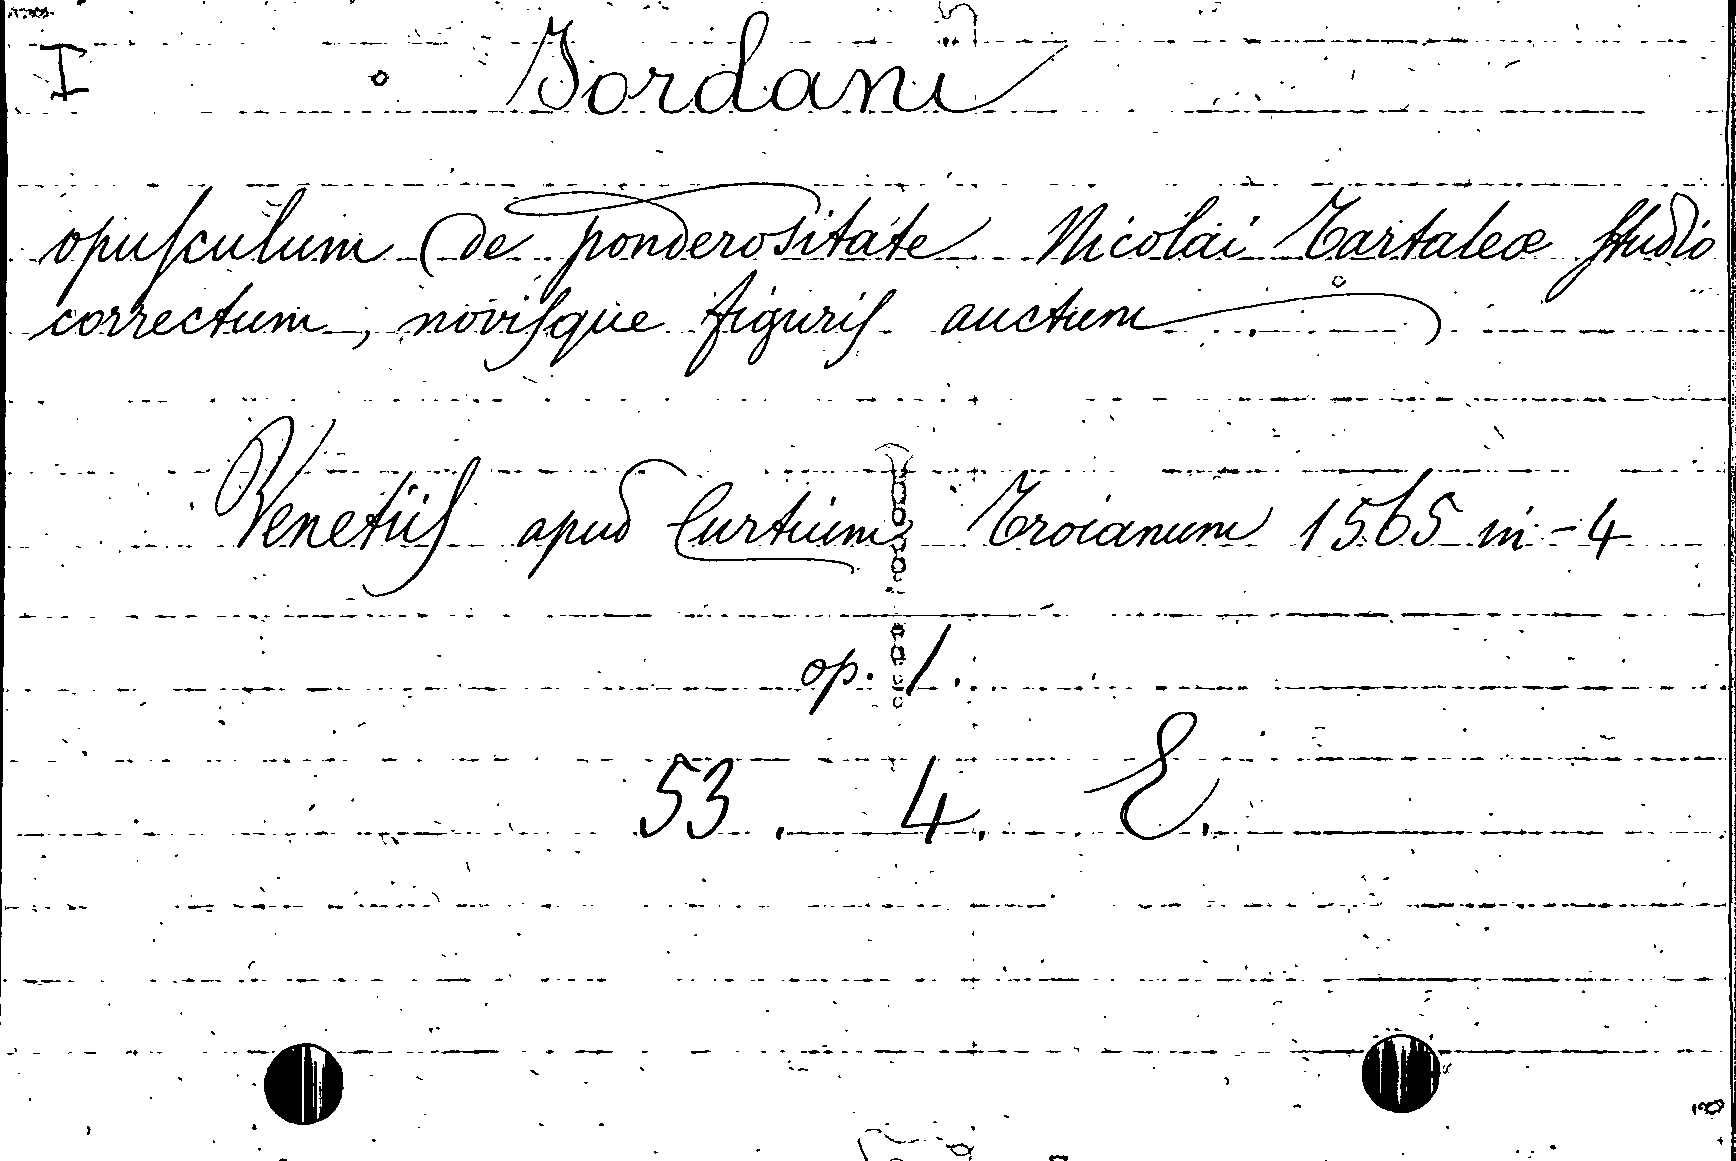 I Iordani
opusculum de ponderositate Nicolai Tartaleæ studio
correctum, novisque figuris auctum
Venetiis apud Curtium Troianum 1565 in-4
op. 1.
53. 4. E.